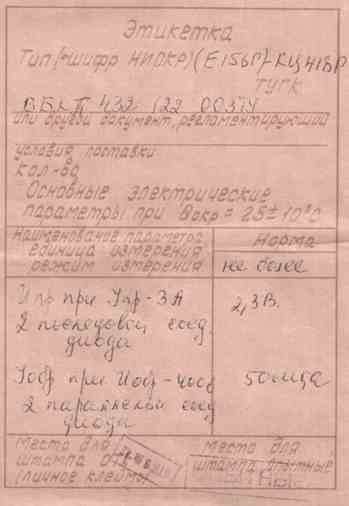 Этикетка
Тип (-шифр НИОКР) (Е156Г)-КЦ418Р
ТУГК
432 122 003ТУ
или другой документ, регламентирующий
условия поставки
кол-во
Основные электрические
параметры при θокр = 25±10°С
Наименование параметра Норма
единица измерения
режим измерения не более
Uпр при Iпр-3А 2,3В.
2 последоват соед.
диода
Iобр при Uобр-400В 50мкА
2 параллельн соед
диода
Место для Место для
штампа ОТК штампа
(личное клеймо)